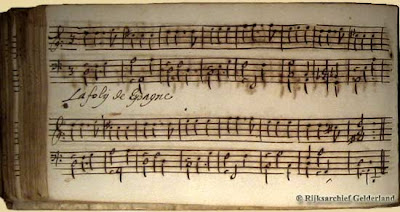 La foly de Epagne
© Rijksarchief Gelderland